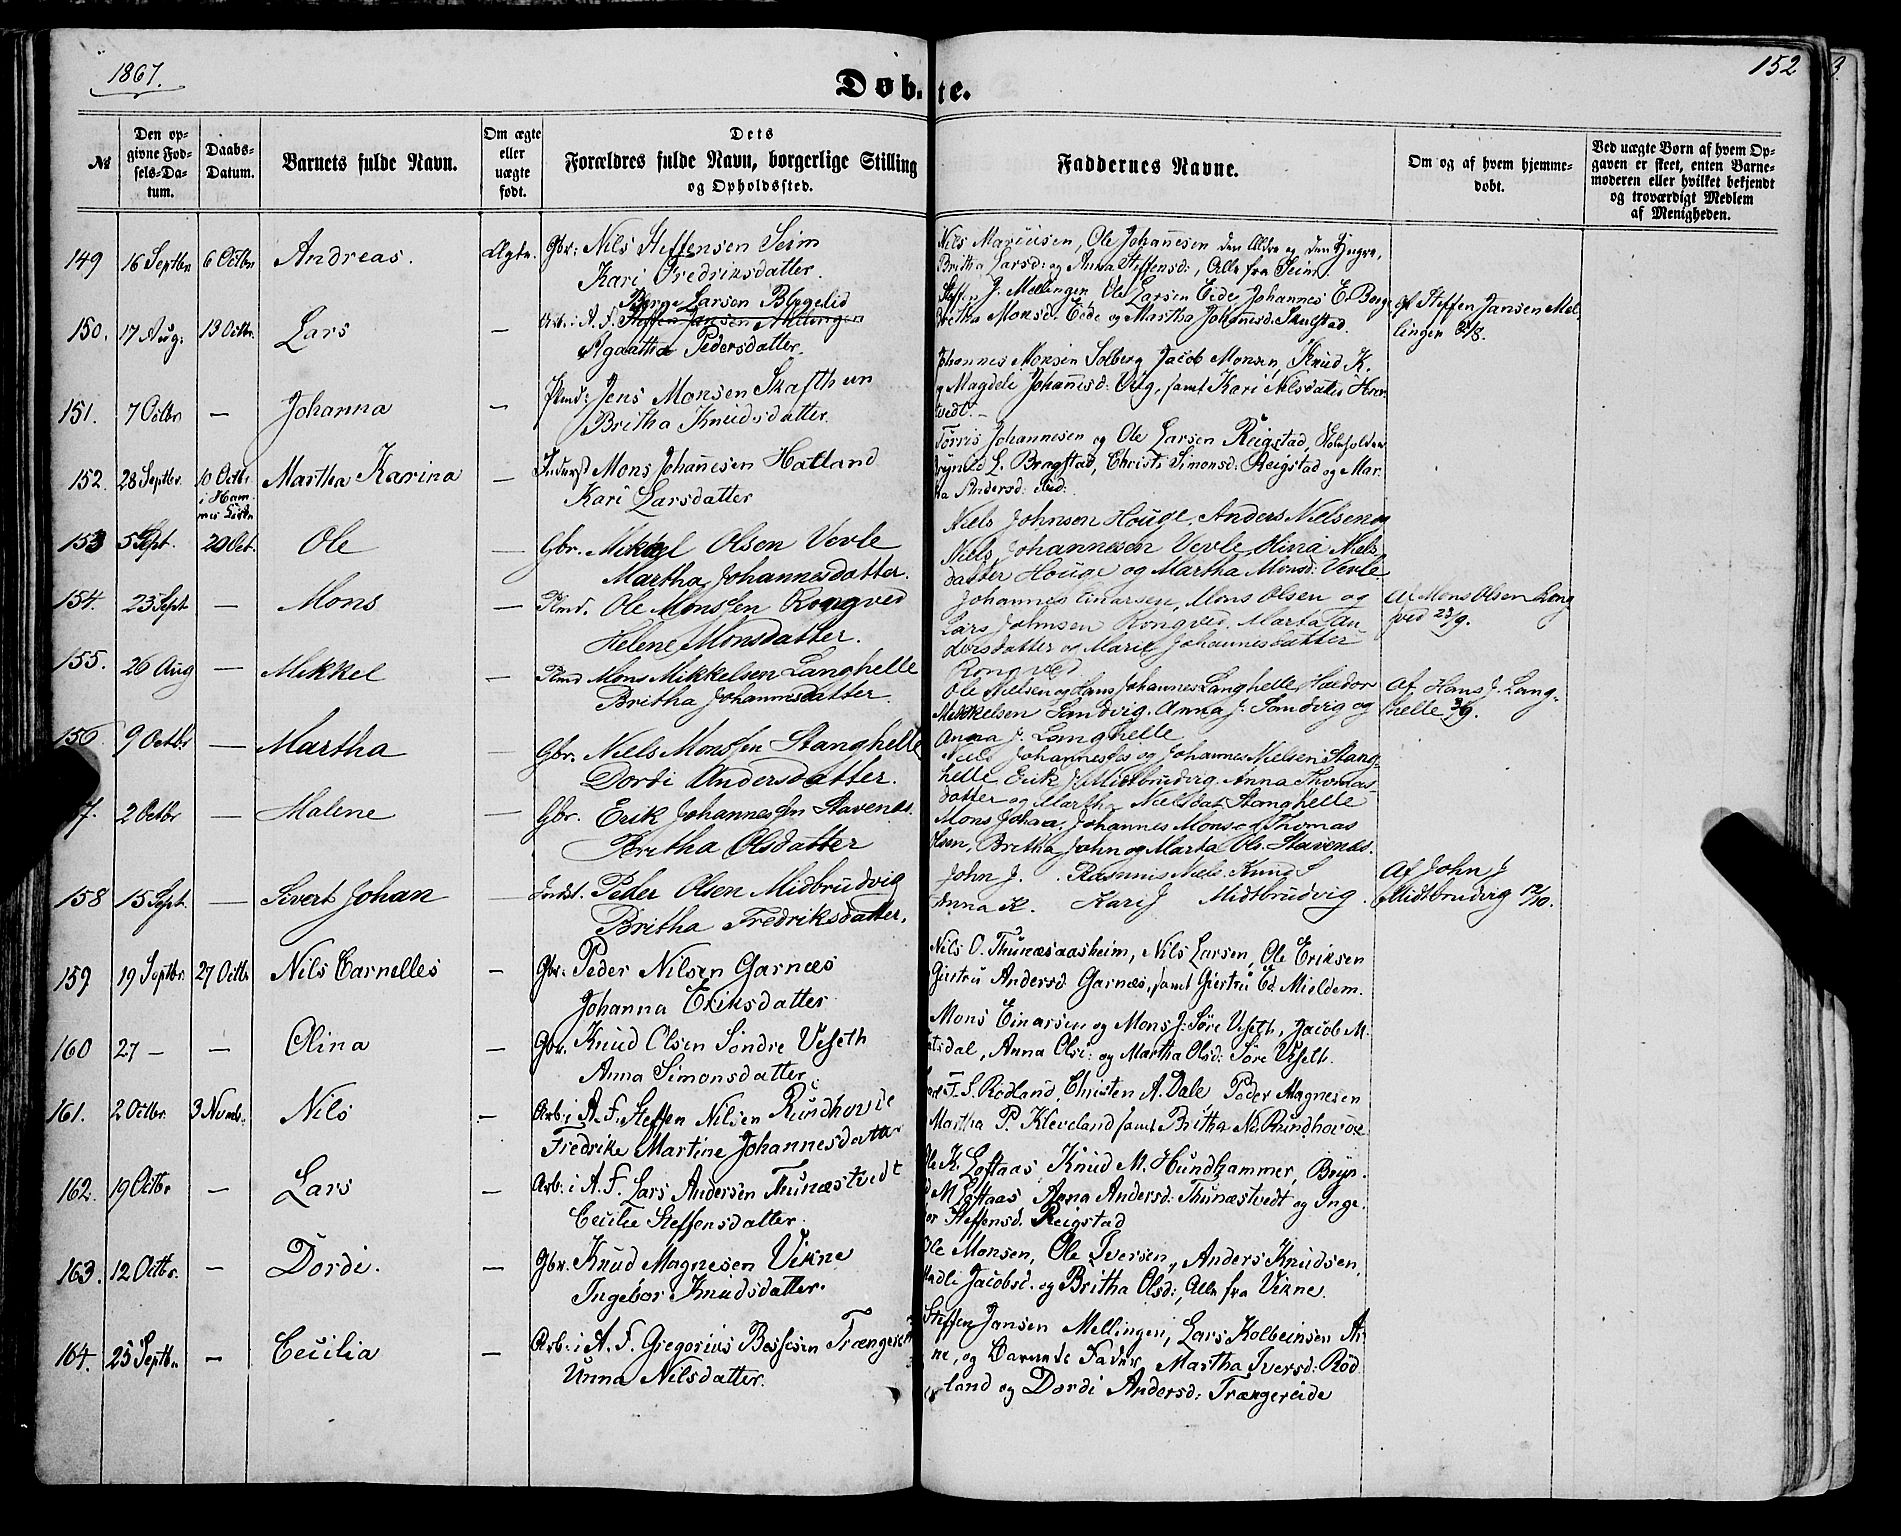 1867.
Døbte.
152
№
Den opgivne Fødsels-Datum.
Daabs-Datum.
Barnets fulde Navn.
Om ægte eller uægte født.
Dets Forældres fulde Navn, borgerlige Stilling og Opholdssted.
Faddernes Navne.
Om og af hvem hjemmedøbt.
Ved uægte Børn af hvem Opgaven er skeet, enten Barnemoderen eller hvilket bekjendt og troværdigt Medlem af Menigheden.
149 16 Septbr 6 Octbr Andreas. Ægte. Gbr: Nils Steffensen Seim
Kari Fredriksdatter.
Nils Mariusen, Ole Johanesen den Ældre og den Yngre,
Britha Larsd: og Anna Steffensd:, Alle fra Seim.
150. 17 Aug: 13 Octbr. Lars — Børge Larsen Bløgelid
Arb: i A. F. Steffen Jansen Mellingen
Agaatha Pedersdatter.
Steff. J. Mellingen, Ole Larsen Eide, Johannes E. Berge,
Britha Monsd. Eide og Martha Johanesd: Skulstad.
af Steffen Jansen Mel-
lingen
151. 7 Octbr — Johanna — Plmd: Jens Monsen Skafthun
Britha Knudsdatter.
Johannes Monsen Solberg, Jacob Monsen, Knud K.
og Magdeli Johanesd: Vig, samt Kari Nilsdatter Her-
tvedt. —
152. 28 Septbr. 10 Octbr i Ham- Martha Karina — Inderst Mons Johanesen Hatland
Kari Larsdatter
Tørris Johannesen og Ole Larsen Reigstad, Skoleholder
Brynild L. Brogstad, Christi Simonsd: Reigstad og Mar-
tha Andersd: ibid:
153 5 Sept. 20 Oct. Ole — Gbr. Mikkel Olsen Vevle
Martha Johannesdatter.
Niels Johnsen Houge, Anders Nielsen og
Niels Johannesen Vevle Olina Niels-
datter Houge og Martha Monsd: Vevle
154. 23 Sept — Mons — Plmd. Ole Monssen Rongved
Helene Monsdatter.
Johannes Einarsen, Mons Olsen og
Lars Johnsen Rongved, Marta An-
dersdatter og Marie Johannesdatter
Rongved
Af Mons Olsen Rong
ved 23/9.
155. 26 Aug — Mikkel — Plmd Mons Mikkelsen Langhelle
Britha Johannesdatter
Ole Nielsen og Hans Johannes Langhelle, Haldor
Mikkelsen Sandvig, Anna J. Sandvig og
Anna J. Langhelle
Af Hans J. Lang-
helle
156. 9 Octbr — Martha — Gbr. Niels Monssen Stanghelle
Dordi Andersdatter.
Niels Johannes og Johannes Nielsen Stang-
helle Erik J Midtbrudvig. Anna Thomas-
datter og Martha Nielsdat. Stanghelle
7. 2 Octbr — Malene — Gbr. Erik Johannessen Stavenes.
Britha Olsdatter
Mons Johan. Johannes Mons og Thomas
Olsen, Britha John og Marta Ols. Stavenes.
158 15 Sept. — Sivert Johan — Indst. Peder Olsen Midbrudvig
Britha Fredriksdatter.
John J. Rasmus Niels Knud S
Anna K. Kari J Midtbrudvig.
Af John J
Midtbrudvig
159 19 Septbr. 27 Octbr Nils Carnelles — Gbr: Peder Nilsen Garnæs
Johanna Eriksdatter
Nils O. Thunæsaasheim, Nils Larsen, Ole Eriksen
Giertru Andersd Garnæs, samt Giertru Ed. Mieldem.
160 27 — — Olina — Gbr. Knud Olsen Søndre Veseth
Anna Simonsdatter
Mons Einarsen og Mons J: Søre Veseth, Jacob M.
Anna Olsd: og Martha Olsd: Søre Veseth.
161. 2 Octbr. 3 Novmb. Nils — Arb: i A. F. Steffen Nilsen Rundhovde
Fredrike Martine Johannesdatter
S. Rødland, Christen A. Dale, Peder Magnesen
Martha P. Kleveland samt Britha N. Rundhovde
162. 19 Octbr — Lars — Arb: i A. F. Lars Andersen Thunæstvedt
Cecilie Steffensdatter.
Ole K. Loftaas Knud M. Hundhammer, Bryn-
M Loftaas Anna Andersd: Thunæstvedt og Inge-
bor Steffensd. Reigstad
163. 12 Octbr. — Dordi. — Gbr. Knud Magnesen Vikne
Ingebor Knudsdatter.
Ole Monsen, Ole Iversen, Anders Knudsen,
Jacobsd. og Britha Olsd:, Alle fra Vikne.
164. 25 Septbr — Cecilia — Arb: i A. F. Gregorius Bessesen Trængereid
Unna Nilsdatter.
Steffen Jansen Mellingen, Lars Kolbeinsen Ar-
ne, og Barnets Fader, Martha Iversd: Rød-
land og Dordi Andersd: Trængereide